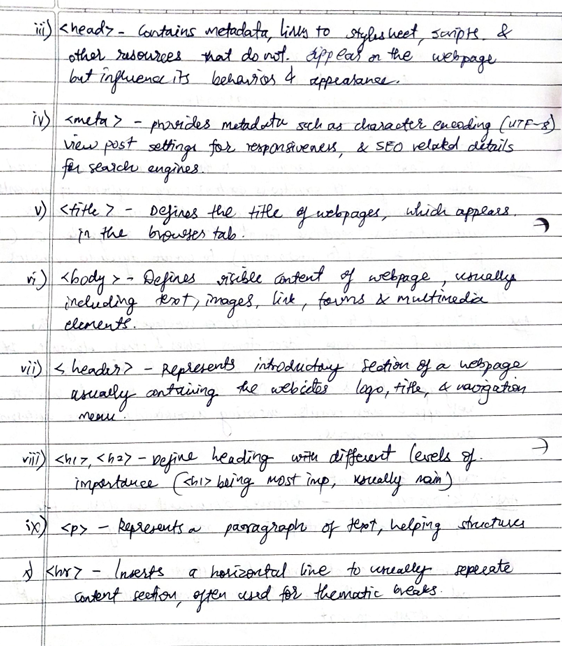 iii) <head> - Contains metadata, links to stylesheet, scripts. &
other resources that do not. appear on the webpage
but influence its behavior & appearance.
iv) <meta> - provides metadata such as character encoding (UTF-8)
view post settings for responsiveness, & SEO related details
for search engines.
v) <title> - Defines the title of webpages, which appears.
in the browser tab.
vi) <body> - Defines visible content of webpage, usually
including text, images, link, forms & multimedia
elements.
vii) <header> - Represents introductory section of a webpage
usually containing the websites logo, title, & navigation
menu.
viii) <h1>, <h2> - Define heading with different levels of.
importance (<h1> being most imp, usually main)
ix) <p> - Represents a paragraph of text, helping structures
x) <hr> - Inserts a horizontal line to usually seperate
content section, often used for thematic breaks.